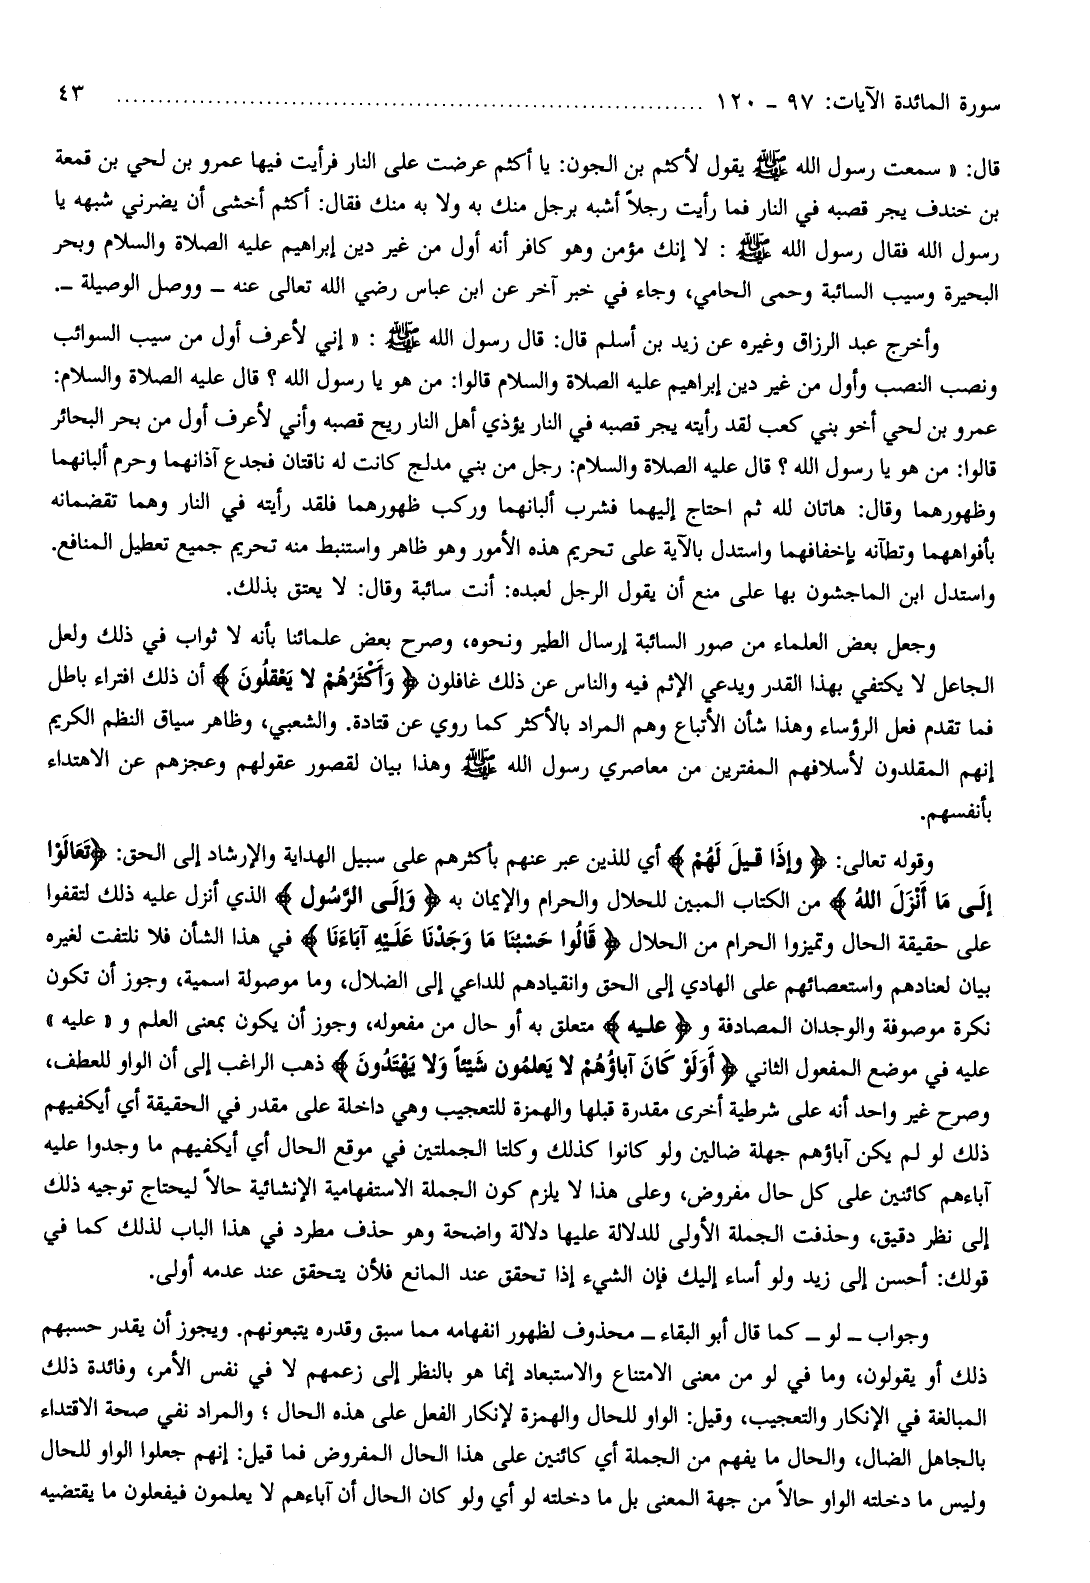 سورة المائدة الآيات: ٩٧ ـ ١٢٠ ........................................................................ ٤٣
قال: « سمعت رسول الله ﷺ يقول لأكثم بن الجون: يا أكثم عرضت على النار فرأيت فيها عمرو بن لحي بن قمعة
بن خندف يجر قصبه في النار فما رأيت رجلاً أشبه برجل منك به ولا به منك فقال: أكثم أخشى أن يضرني شبهه يا
رسول الله فقال رسول الله ﷺ : لا إنك مؤمن وهو كافر أنه أول من غير دين إبراهيم عليه الصلاة والسلام وبحر
البحيرة وسيب السائبة وحمى الحامي، وجاء في خبر آخر عن ابن عباس رضي الله تعالى عنه ـ ووصل الوصيلة ـ.
وأخرج عبد الرزاق وغيره عن زيد بن أسلم قال: قال رسول الله ﷺ : « إني لأعرف أول من سيب السوائب
ونصب النصب وأول من غير دين إبراهيم عليه الصلاة والسلام قالوا: من هو يا رسول الله ؟ قال عليه الصلاة والسلام:
عمرو بن لحي أخو بني كعب لقد رأيته يجر قصبه في النار يؤذي أهل النار ريح قصبه وأني لأعرف أول من بحر البحائر
قالوا: من هو يا رسول الله ؟ قال عليه الصلاة والسلام: رجل من بني مدلج كانت له ناقتان فجدع آذانهما وحرم ألبانهما
وظهورهما وقال: هاتان لله ثم احتاج إليهما فشرب ألبانهما وركب ظهورهما فلقد رأيته في النار وهما تقضمانه
بأفواههما وتطآنه بإخفافهما واستدل بالآية على تحريم هذه الأمور وهو ظاهر واستنبط منه تحريم جميع تعطيل المنافع.
واستدل ابن الماجشون بها على منع أن يقول الرجل لعبده: أنت سائبة وقال: لا يعتق بذلك.
وجعل بعض العلماء من صور السائبة إرسال الطير ونحوه، وصرح بعض علمائنا بأنه لا ثواب في ذلك ولعل
الجاعل لا يكتفي بهذا القدر ويدعي الإثم فيه والناس عن ذلك غافلون ﴿ وَأَكْثَرُهُمْ لا يَعْقلُونَ ﴾ أن ذلك افتراء باطل
فما تقدم فعل الرؤساء وهذا شأن الأتباع وهم المراد بالأكثر كما روي عن قتادة. والشعبي، وظاهر سياق النظم الكريم
إنهم المقلدون لأسلافهم المفترين من معاصري رسول الله ﷺ وهذا بيان لقصور عقولهم وعجزهم عن الاهتداء
بأنفسهم.
وقوله تعالى: ﴿ وإذَا قيلَ لَهُمْ ﴾ أي للذين عبر عنهم بأكثرهم على سبيل الهداية والإرشاد إلى الحق: ﴿تَعَالَوْا
إلَى مَا أَنْزَلَ اللهُ ﴾ من الكتاب المبين للحلال والحرام والإيمان به ﴿ وَإلَى الرَّسُول ﴾ الذي أنزل عليه ذلك لتقفوا
على حقيقة الحال وتميزوا الحرام من الحلال ﴿ قَالُوا حَسْبُنَا مَا وَجَدْنَا عَلَيْهِ آبَاءَنَا ﴾ في هذا الشأن فلا نلتفت لغيره
بيان لعنادهم واستعصائهم على الهادي إلى الحق وانقيادهم للداعي إلى الضلال، وما موصولة اسمية، وجوز أن تكون
نكرة موصوفة والوجدان المصادفة و ﴿ عليه ﴾ متعلق به أو حال من مفعوله، وجوز أن يكون بمعنى العلم و « عليه »
عليه في موضع المفعول الثاني ﴿ أَوَلَوْ كَانَ آباؤُهُمْ لا يَعلمُون شَيْئاً وَلا يَهْتَدُونَ ﴾ ذهب الراغب إلى أن الواو للعطف،
وصرح غير واحد أنه على شرطية أخرى مقدرة قبلها والهمزة للتعجيب وهي داخلة على مقدر في الحقيقة أي أيكفيهم
ذلك لو لم يكن آباؤهم جهلة ضالين ولو كانوا كذلك وكلتا الجملتين في موقع الحال أي أيكفيهم ما وجدوا عليه
آباءهم كائنين على كل حال مفروض، وعلى هذا لا يلزم كون الجملة الاستفهامية الإنشائية حالاً ليحتاج توجيه ذلك
إلى نظر دقيق، وحذفت الجملة الأولى للدلالة عليها دلالة واضحة وهو حذف مطرد في هذا الباب لذلك كما في
قولك: أحسن إلى زيد ولو أساء إليك فإن الشيء إذا تحقق عند المانع فلأن يتحقق عند عدمه أولى.
وجواب ـ لو ـ كما قال أبو البقاء ـ محذوف لظهور انفهامه مما سبق وقدره يتبعونهم. ويجوز أن يقدر حسبهم
ذلك أو يقولون، وما في لو من معنى الامتناع والاستبعاد إنما هو بالنظر إلى زعمهم لا في نفس الأمر، وفائدة ذلك
المبالغة في الإنكار والتعجيب، وقيل: الواو للحال والهمزة لإنكار الفعل على هذه الحال ؛ والمراد نفي صحة الاقتداء
بالجاهل الضال، والحال ما يفهم من الجملة أي كائنين على هذا الحال المفروض فما قيل: إنهم جعلوا الواو للحال
وليس ما دخلته الواو حالاً من جهة المعنى بل ما دخلته لو أي ولو كان الحال أن آباءهم لا يعلمون فيفعلون ما يقتضيه